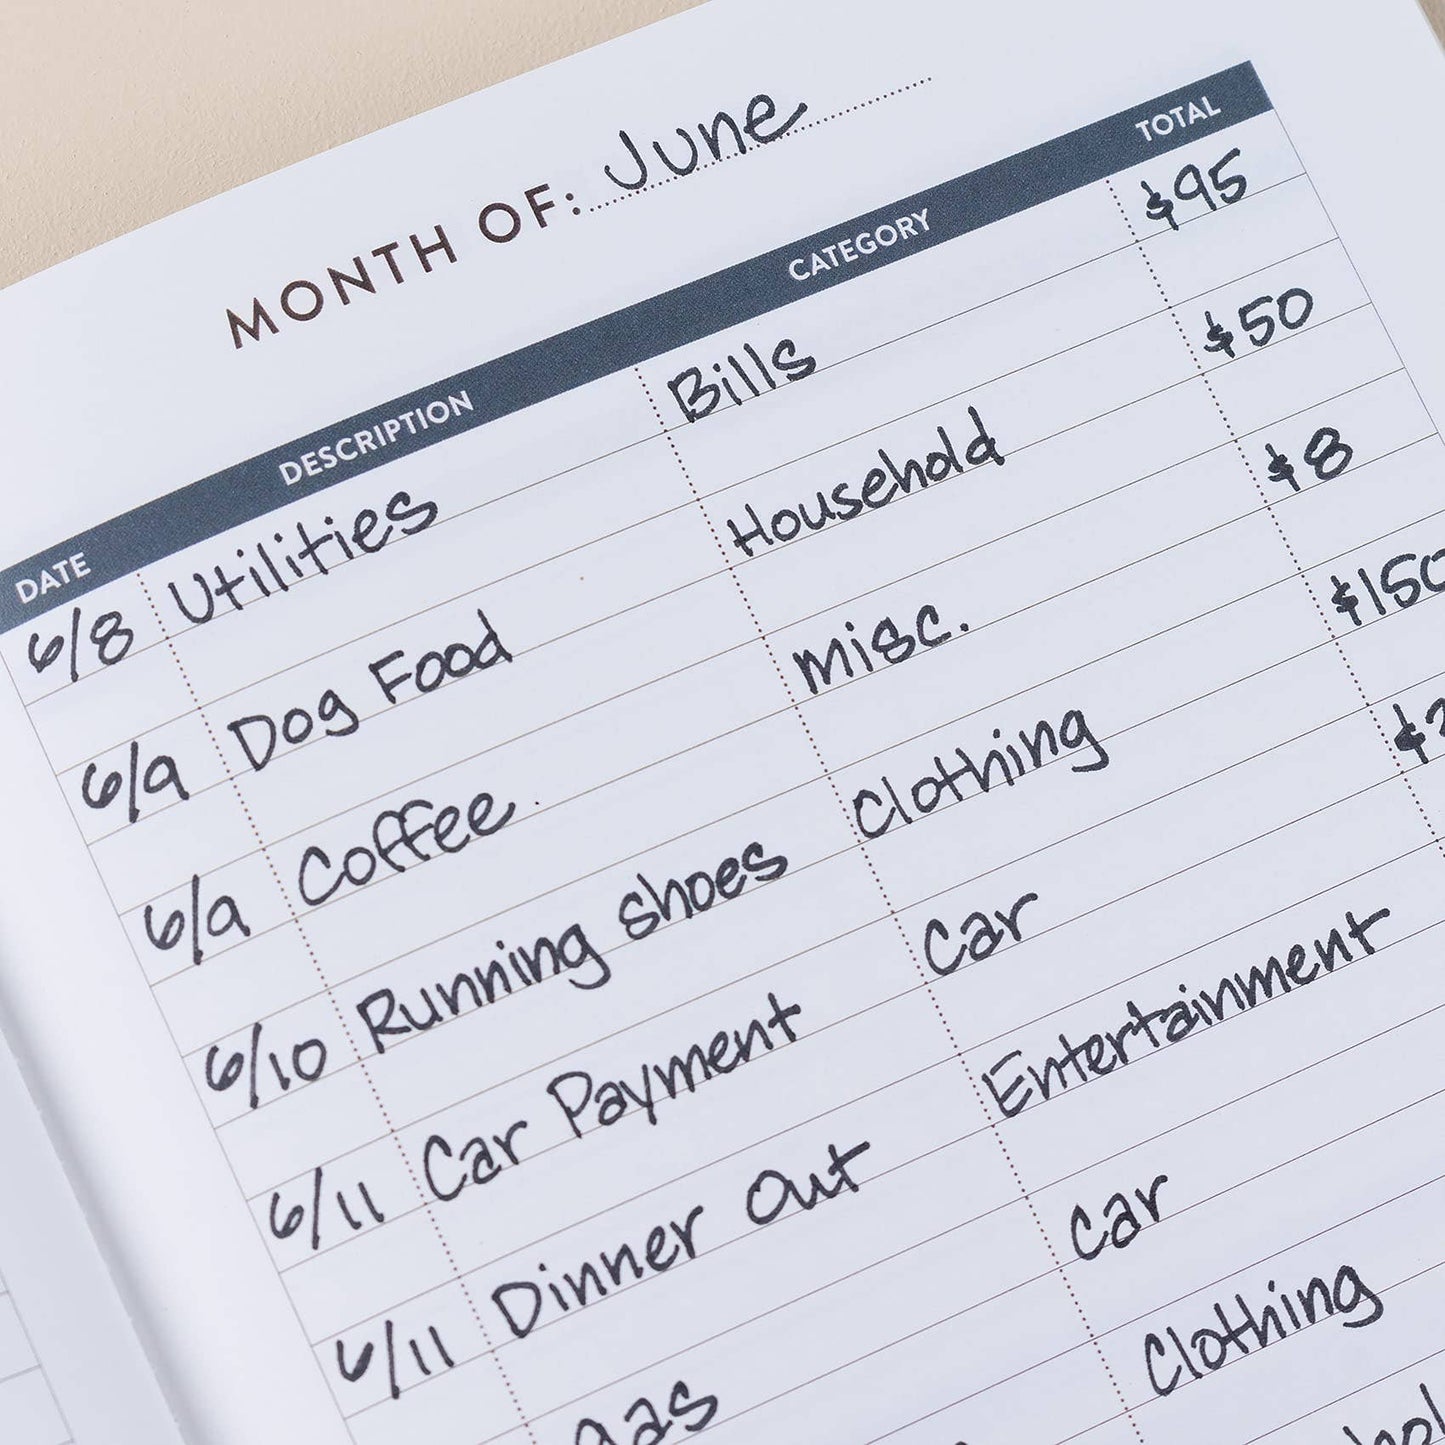 MONTH OF: June
DATE DESCRIPTION CATEGORY TOTAL
6/8 Utilities Bills $95
6/9 Dog Food Household $50
6/9 Coffee Misc. $8
6/10 Running shoes Clothing $150
6/11 Car Payment Car
6/11 Dinner Out Entertainment
gas Car
Clothing